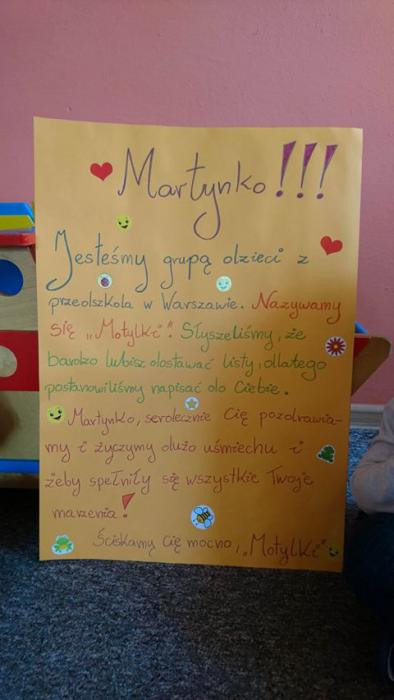 Martynko!!!
Jesteśmy grupą dzieci z
przedszkola w Warszawie. Nazywamy
się „Motylki". Słyszeliśmy, że
bardzo lubisz dostawać listy, dlatego
postanowiliśmy napisać do Ciebie.
Martynko, serdecznie Cię pozdrawia-
my i życzymy dużo uśmiechu i
żeby spełniły się wszystkie Twoje
marzenia!
Ściskamy Cię mocno, „Motylki"